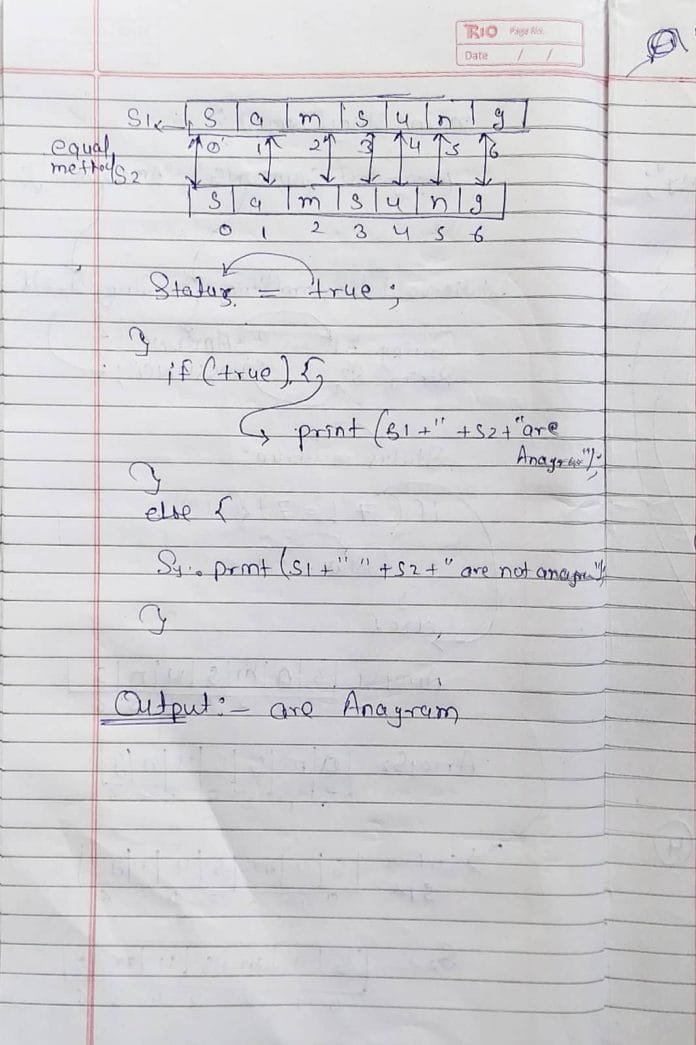 RIO Page No.
Date / /
S1 s a m s u n g
equal 0 1 2 3 4 5 6
method S2
s a m s u n g
0 1 2 3 4 5 6
Status = true;
}
if (true) {
print (S1+" +S2+"are
Anagram");
}
else {
Sy.. print (S1+" "+S2+" are not anagram");
}
Output:- are Anagram